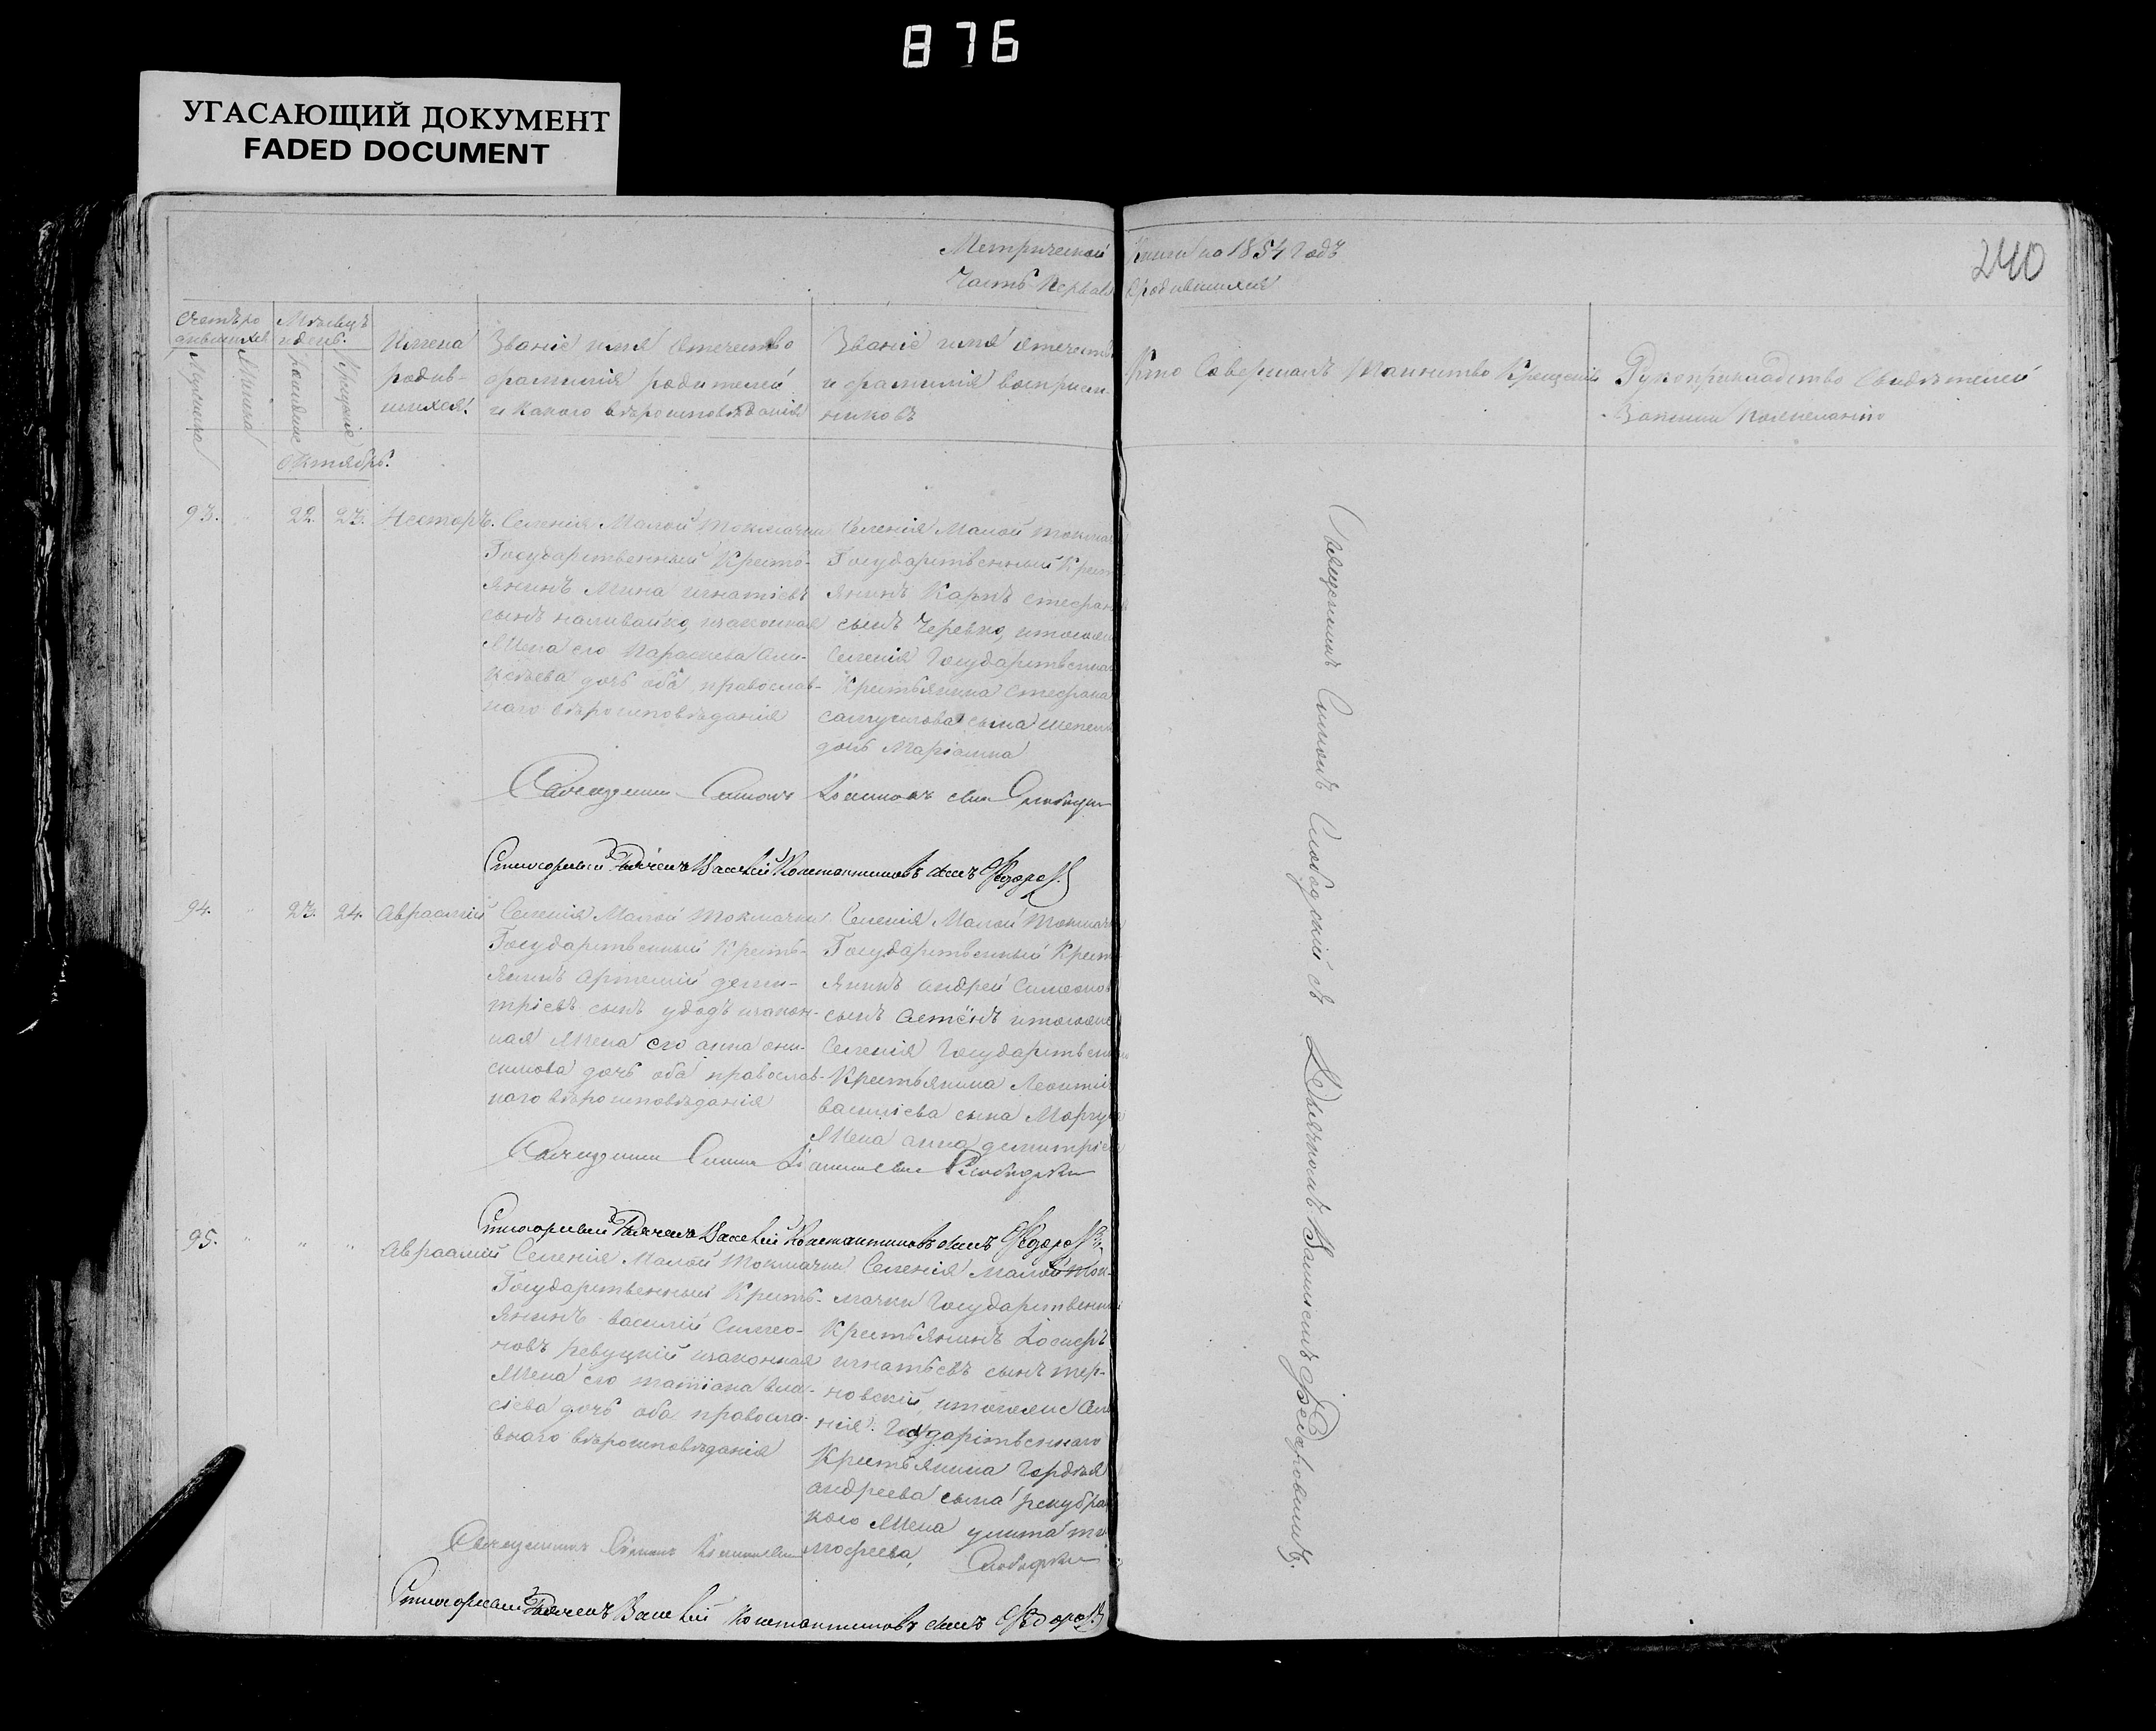 876
УГАСАЮЩИЙ ДОКУМЕНТ
FADED DOCUMENT
240
Метрической Книги на 1854 Годъ
Часть Первая О родившихся
Мѣсяцъ и день.
Мужеска
Женска
Рожденія
Крещенія
Имена родив-
шихся.
Званіе имя Отечество
фамилія родителей
и какого вѣроисповѣданія
Званіе имя Отечество
и фамилія воспріем-
никовъ
Кто Совершалъ Таинство Крещенія
Рукоприкладство Свидѣтелей
Записи по желанію
Октябрь.
93. 22. 23. Несторъ.
Селенія Малой Токмачки
Государственный Кресть-
янинъ Мина Игнатіевъ
сынъ наливайко, изаконная
Жена его Параскева Али-
ксѣева дочь оба православ-
наго вѣроисповѣданія
Селенія Малой Токмач
Государственный Крест
янинъ Карпъ Стефанов
сынъ Черевко, итогоже
Селенія Государственна
Крестьянина Стефана
самуилова сына
дочь Маріанна
Священникъ Симонъ сынъ Слободски
Стихарный Дьячекъ Василій Константиновъ сынъ Федоров
94. 23. 24. Авраамій
Селенія Малой Токмачки
Государственный Кресть-
янинъ Артемій дими-
тріевъ сынъ удодъ изакон-
ная Жена его анна они-
симова дочь оба православ-
наго вѣроисповѣданія
Селенія Малой Токмачк
Государственный Крест
янинъ андрей Симеонов
сынъ итогоже
Селенія Государственна
Крестьянина Леонтія
василіева сына Моргун
Жена анна димитріев
Священникъ Симонъ Слободски
Стихарный Дьячекъ Василій Константиновъ сынъ Федоров
95. " " " Авраамій
Селенія Малой Токмачки
Государственный Кресть-
янинъ василій Симео-
новъ ревуцкій изаконная
Жена его татіана вла-
сіева дочь оба правосла-
внаго вѣроисповѣданія
Селенія Малой Ток-
мачки Государственный
Крестьянинъ Іосифъ
игнатьевъ сынъ тер-
новскій, итогоже Селе
нія: Государственнаго
Крестьянина Гордѣя
андреева сына
кого Жена улита ти
мофеева,
Священникъ Симонъ Слободски
Стихарный Дьячекъ Василій Константиновъ сынъ Федоров
Священникъ Симонъ Слободскій съ Дьячкомъ Василіемъ Федоровимъ.